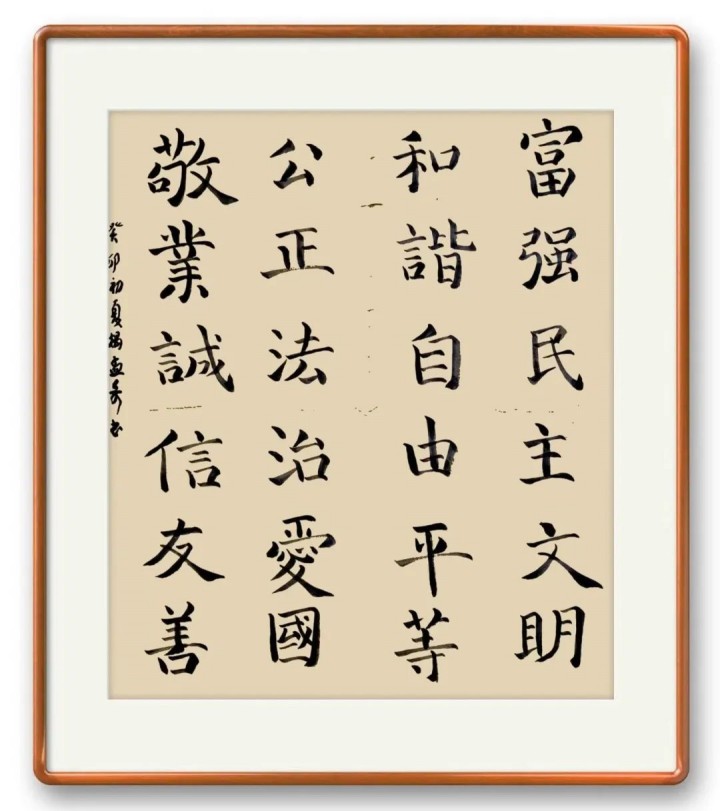 富强民主文明
和諧自由平等
公正法治愛國
敬業誠信友善
癸卯初夏楊